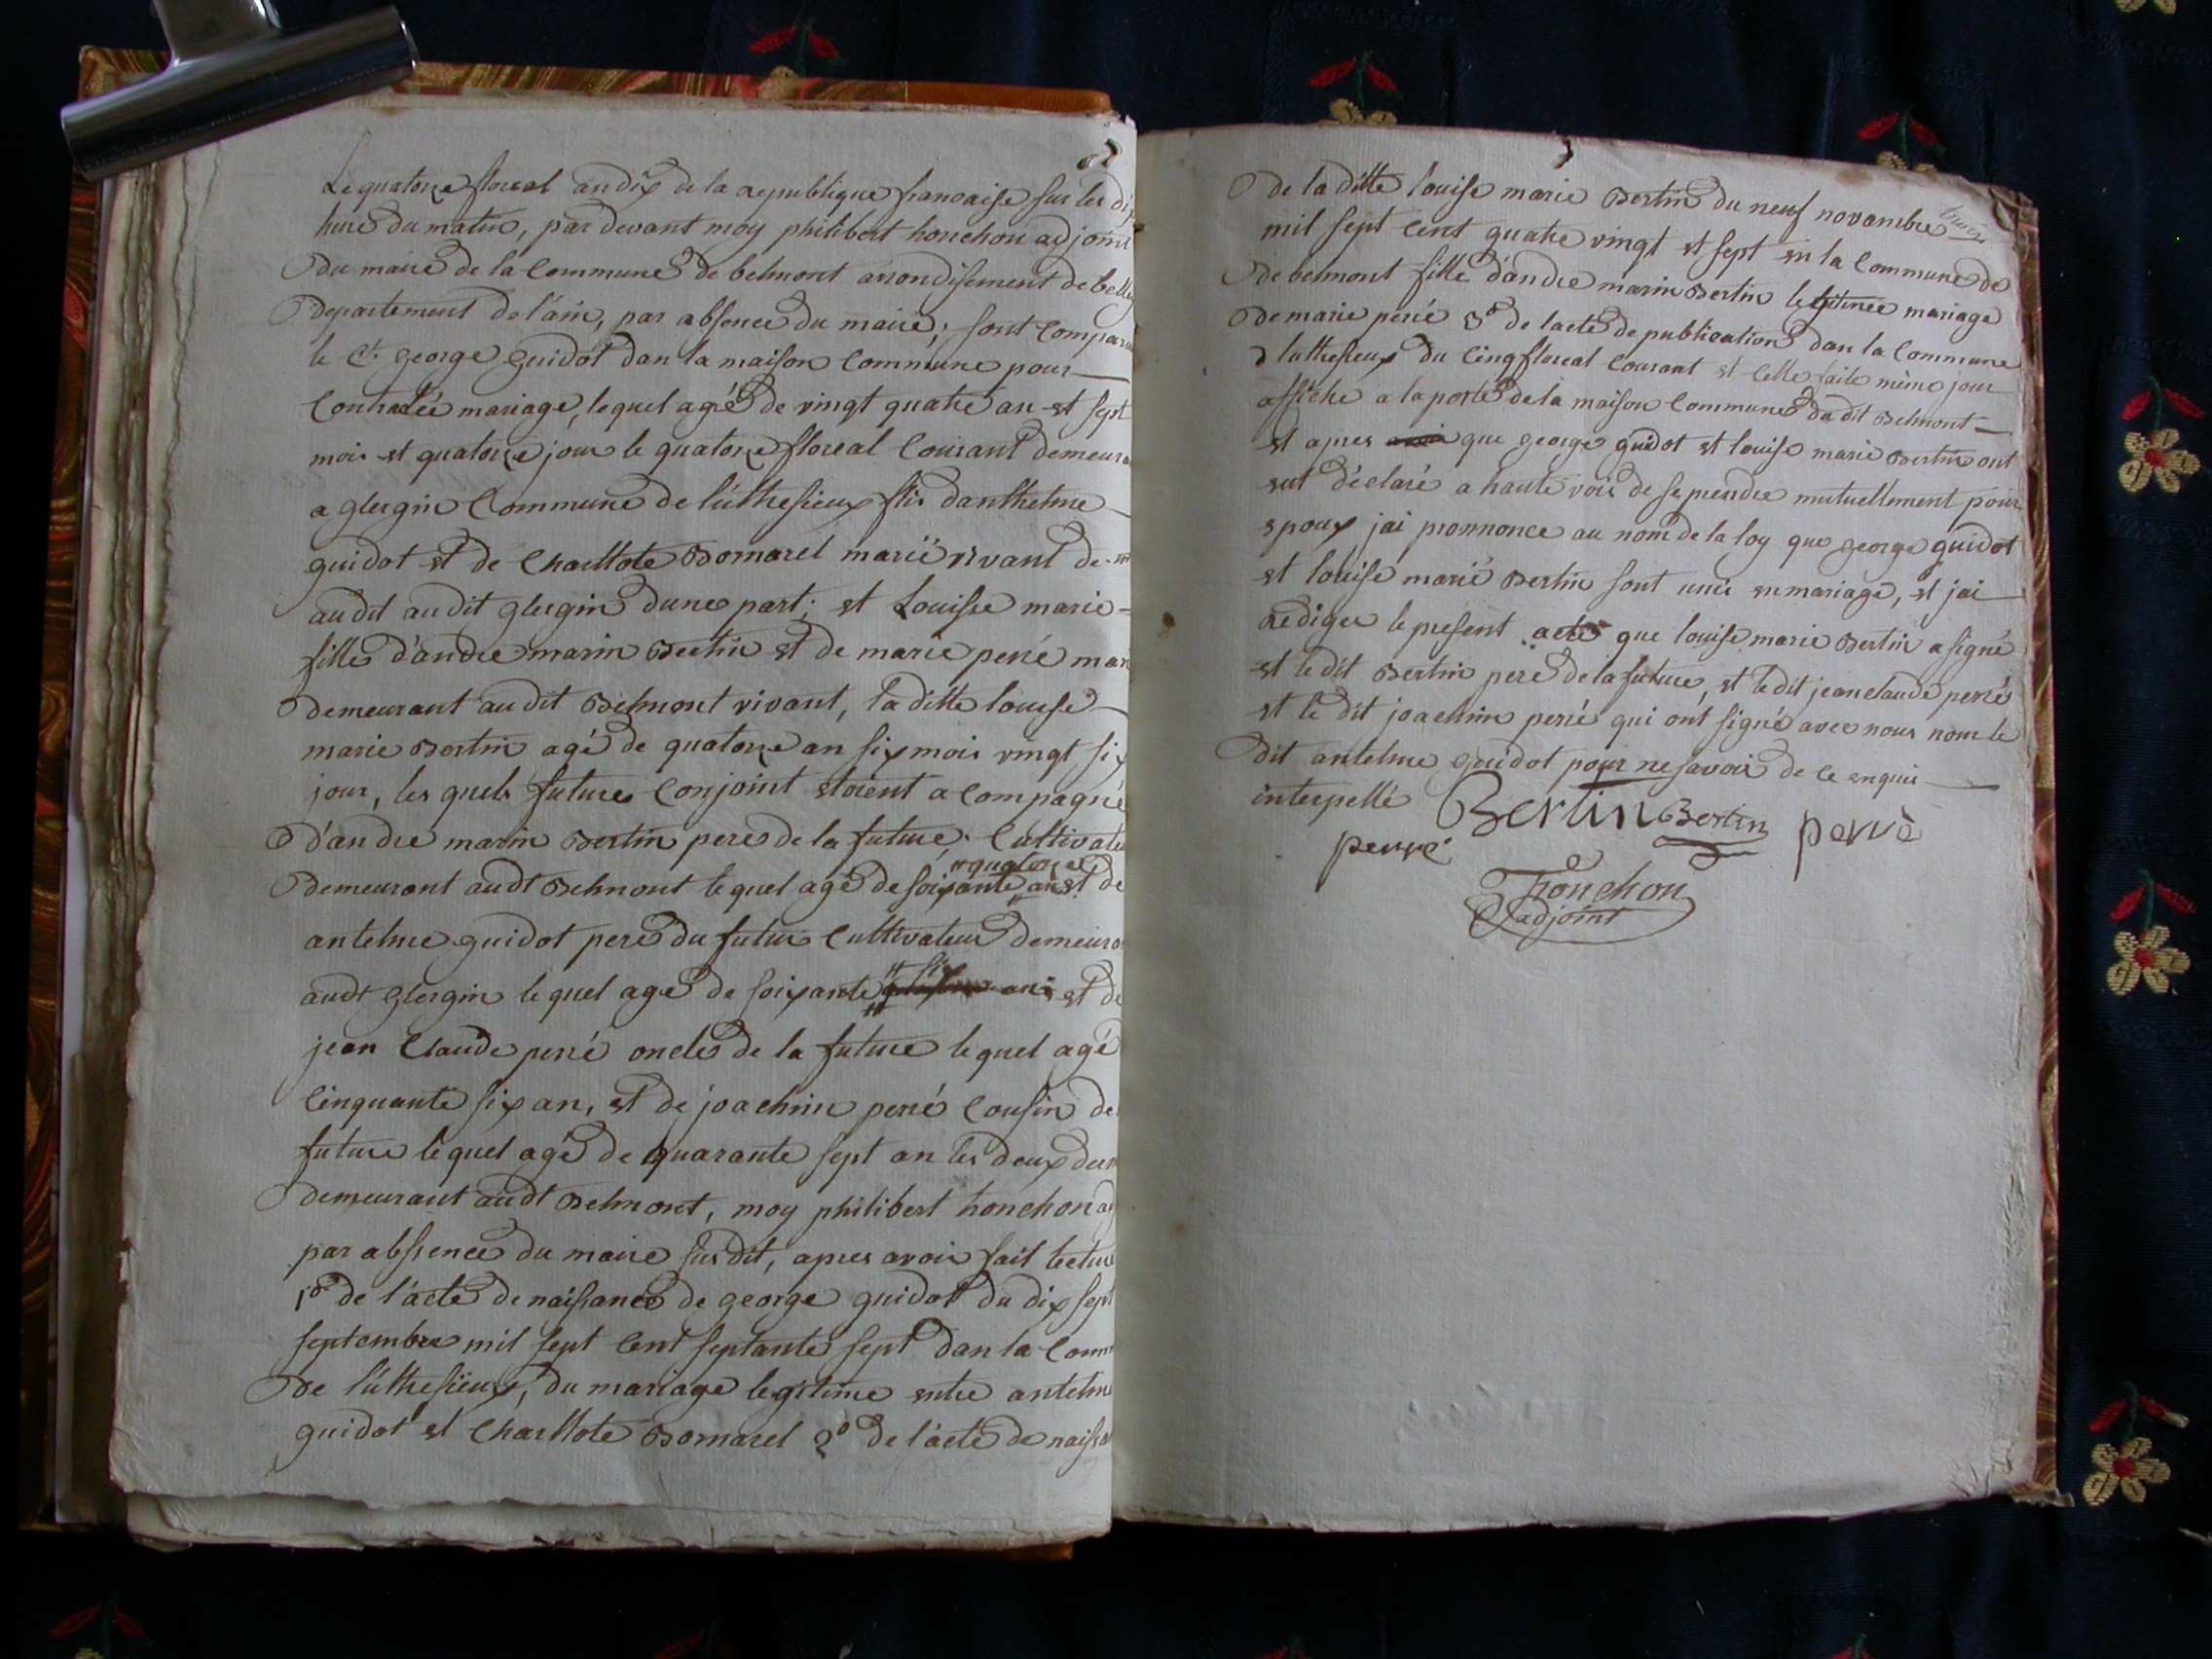 Le quatorze floreal an dix de la republique francaise sur les dix
hure du matin, par devant moy philibert honchon adjoint
Du maire de la Commune de belmont arrondisement de belley
Departement de l'ain, par absence du maire; sont Comparu
le Ct. george guidot dan la maison Commune pour
Contractée mariage, lequel agé de vingt quatre an et sept
mois et quatorze jour le quatorze floreal Courant demeura
a glergin Commune de lúthesieux fils danthelme
guidot et de Charllote Bomarel marié vivant
audit audit glergin dune part; et Louisse marie
fille d'andre marin Bertin et de marie perré mar
Demeurant audit Belmont vivant, la ditte louise
marie Bertin agé de quatorze an six mois vingt six
jour, les quels future Conjoint étoient acompagné
D'andre marin Bertin pere de la future, Cultivate
"quatorze
Demeurant audt Belmont lequel agé de soixante an et de
antelme guidot pere du futur Cultivateur demeura
six
audt glergin lequel agé de soixante ans et de
jean Claude perré oncle de la future lequel agé
Cinquante six an, et de joachim perré Cousin de
future lequel agé de quarante sept an les deux der
Demeurant audt Belmont, moy philibert honchon a
par absence du maire susdit, apres avoir fait lectur
1o de l'acte de naissance de george guidot du dix sept
septembre mil sept Cent septante sept dan la Comm
De lúthesieux, du mariage legitime entre antelm
guidot et Charllote Bomarel 2o de l'acte de naissa
De la ditte louise marie Bertin du neuf novambre
mil sept Cent quatre vingt et sept en la Commune de
De belmont fille d'andre marin Bertin legitimee mariage
De marie perré 3o de lacte de publication dan la Commune
D luthesieux du Cinq floreal Courant et Celle faite même jour
affiche a la porte de la maison Commune du dit Belmont
et apres que george guidot et louise marie Bertin ont
eut déclaré a haute vois de se prendre mutuellement pour
epoux jai pronnonce au nom de la loy que george guidot
et louise marie Bertin sont unis en mariage, et jai
Rediger le present acte que louise marie Bertin a signé
et le dit Bertin pere de la future, et le dit jean claude perré
et le dit joachim perré qui ont signé avec nous nom le
Dit antelme guidot pour ne savoir de Ce enquis
interpellé Bertin Bertin
perré perrè
honchon
adjoint